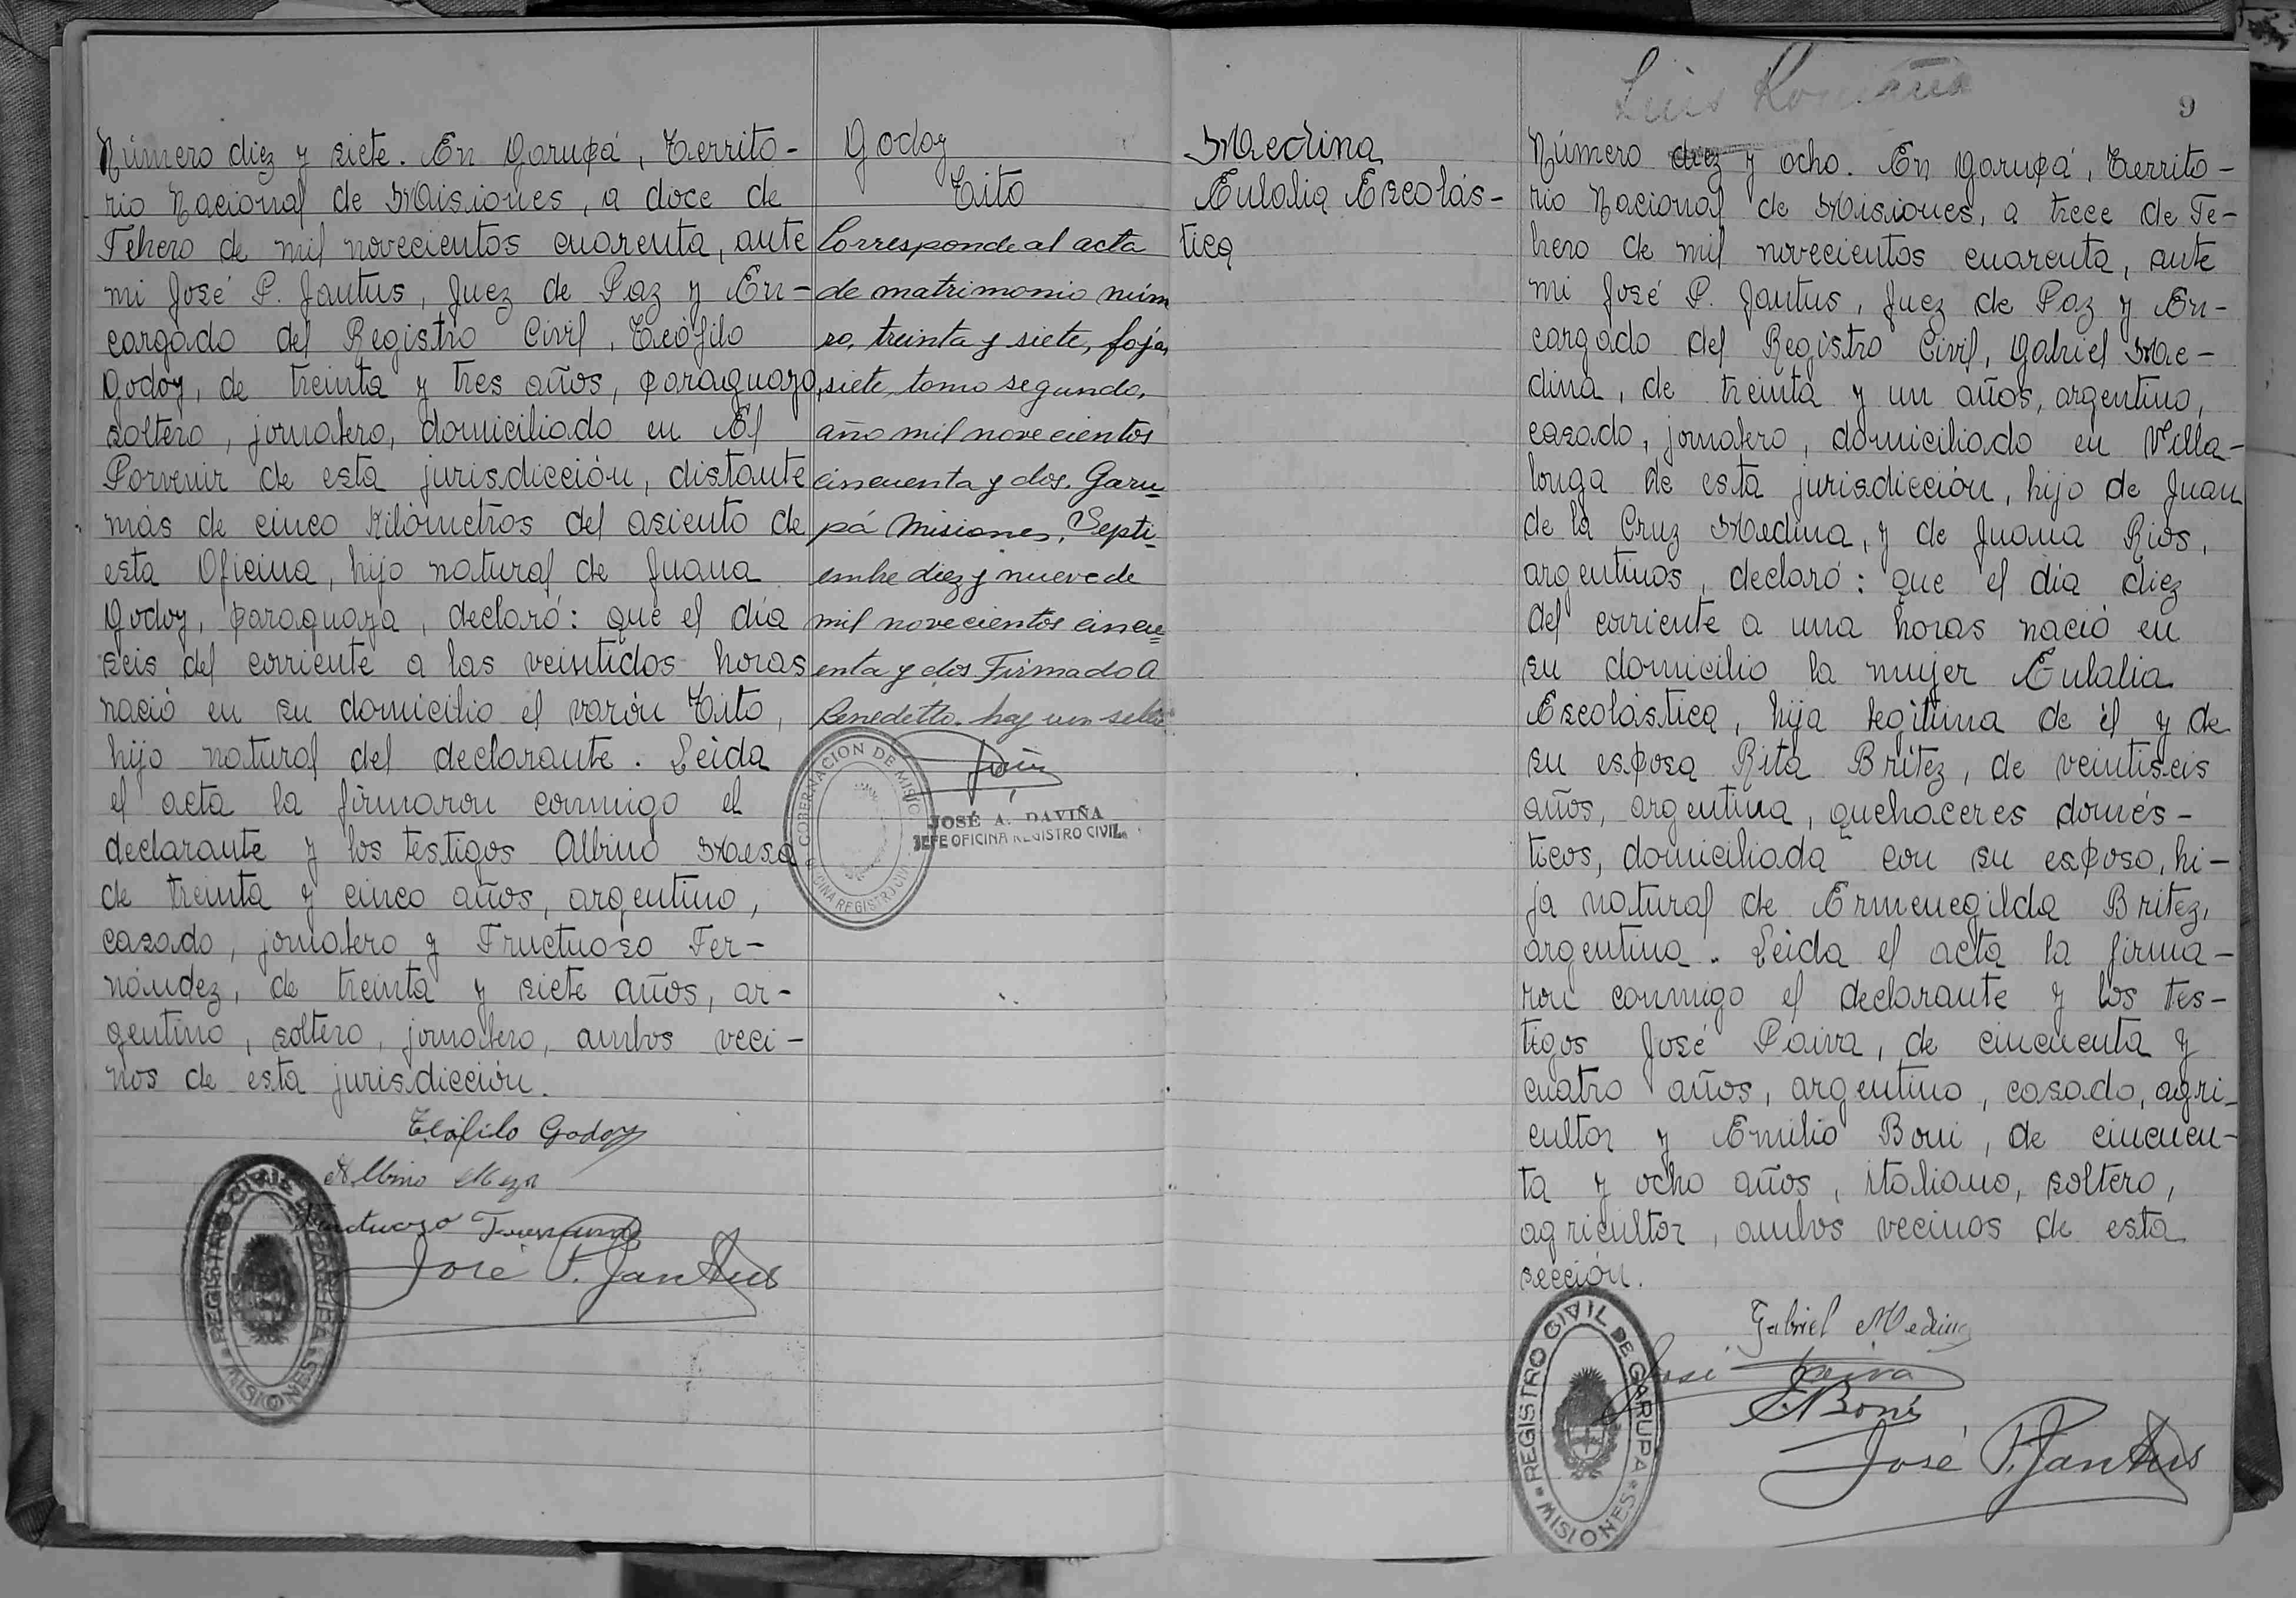 Número diez y siete. En Garupá, Territo-
rio Nacional de Misiones, a doce de
Febrero de mil novecientos cuarenta, ante
mi José P. Jantus, Juez de Paz y En-
cargado del Registro Civil, Teófilo
Godoy, de treinta y tres años, paraguayo,
soltero, jornalero, domiciliado en El
Porvenir de esta jurisdicción, distante
más de cinco kilómetros del asiento de
esta Oficina, hijo natural de Juana
Godoy, paraguaya, declaró: que el día
seis del corriente a las veintidos horas
nació en su domicilio el varón Tito,
hijo natural del declarante. Leida
el acta la firmaron conmigo el
declarante y los testigos Albino Mesa
de treinta y cinco años, argentino,
casado, jornalero y Fructuoso Fer-
nández, de treinta y siete años, ar-
gentino, soltero, jornalero, ambos veci-
nos de esta jurisdicción.
Teófilo Godoy
Albino Meza
José P. Jantus
REGISTRO CIVIL DE GARUPA
MISIONES
Godoy
Tito
Corresponde al acta
de matrimonio núm
ro, treinta y siete, fojas
siete, tomo segundo,
año mil novecientos
cincuenta y dos. Garu-
pá Misiones, Septi-
embre diez y nueve de
mil novecientos cincu=
enta y dos Firmado A
Benedetto. hay un sello
GOBERNACION DE MISIO
CINA REGISTRO CIVIL
JOSÉ A. DAVIÑA
JEFE OFICINA REGISTRO CIVIL
Medina
Eulalia Escolás-
tica
Luis Romaña
9
Número diez y ocho. En Garupá, Territo-
rio Nacional de Misiones, a trece de Fe-
brero de mil novecientos cuarenta, ante
mi José P. Jantus, Juez de Paz y En-
cargado del Registro Civil, Gabriel Me-
dina, de treinta y un años, argentino,
casado, jornalero, domiciliado en Villa-
longa de esta jurisdicción, hijo de Juan
de la Cruz Medina, y de Juana Rios,
argentinos, declaró: que el día diez
del corriente a una horas nació en
su domicilio la mujer Eulalia
Escolástica, hija legítima de él y de
su esposa Rita Britez, de veintiseis
años, argentina, quehaceres domés-
ticos, domiciliada con su esposo, hi-
ja natural de Ermenegilda Britez,
argentina. Leida el acta la firma-
ron conmigo el declarante y los tes-
tigos José Paiva, de cincuenta y
cuatro años, argentino, casado, agri-
cultor y Emilio Boni, de cincuen-
ta y ocho años, italiano, soltero,
agricultor, ambos vecinos de esta
sección.
Gabriel Medina
José Paiva
E. Boni
José P. Jantus
REGISTRO CIVIL DE GARUPA
MISIONES